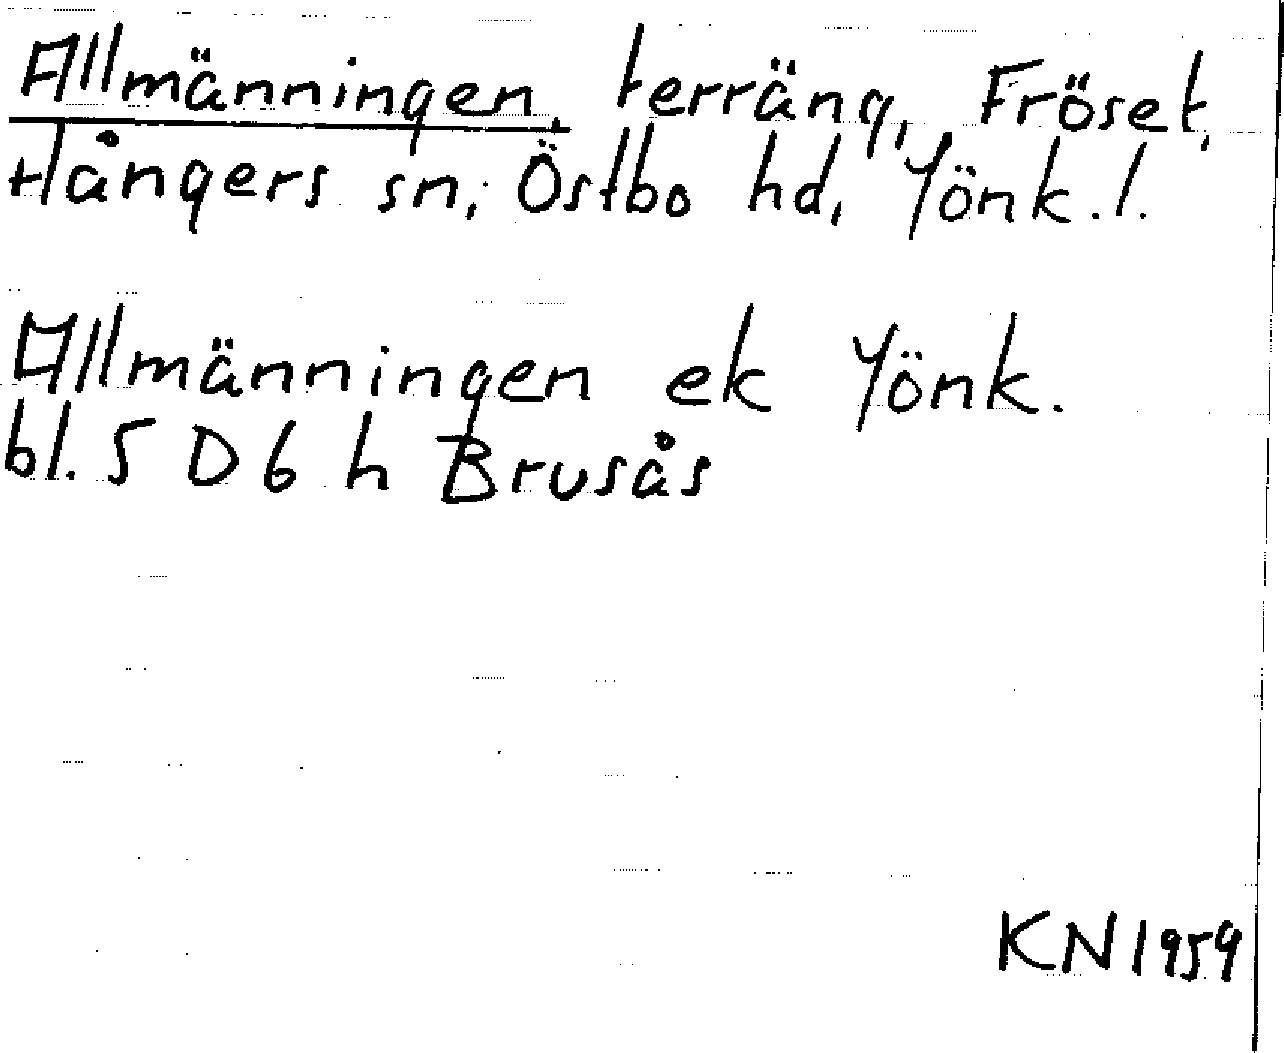 Allmänningen, terräng, Fröset,
Hångers sn, Östbo hd, Jönk.l.
Allmänningen ek Jönk.
bl. 5 D 6 h Brusås
KN 1959